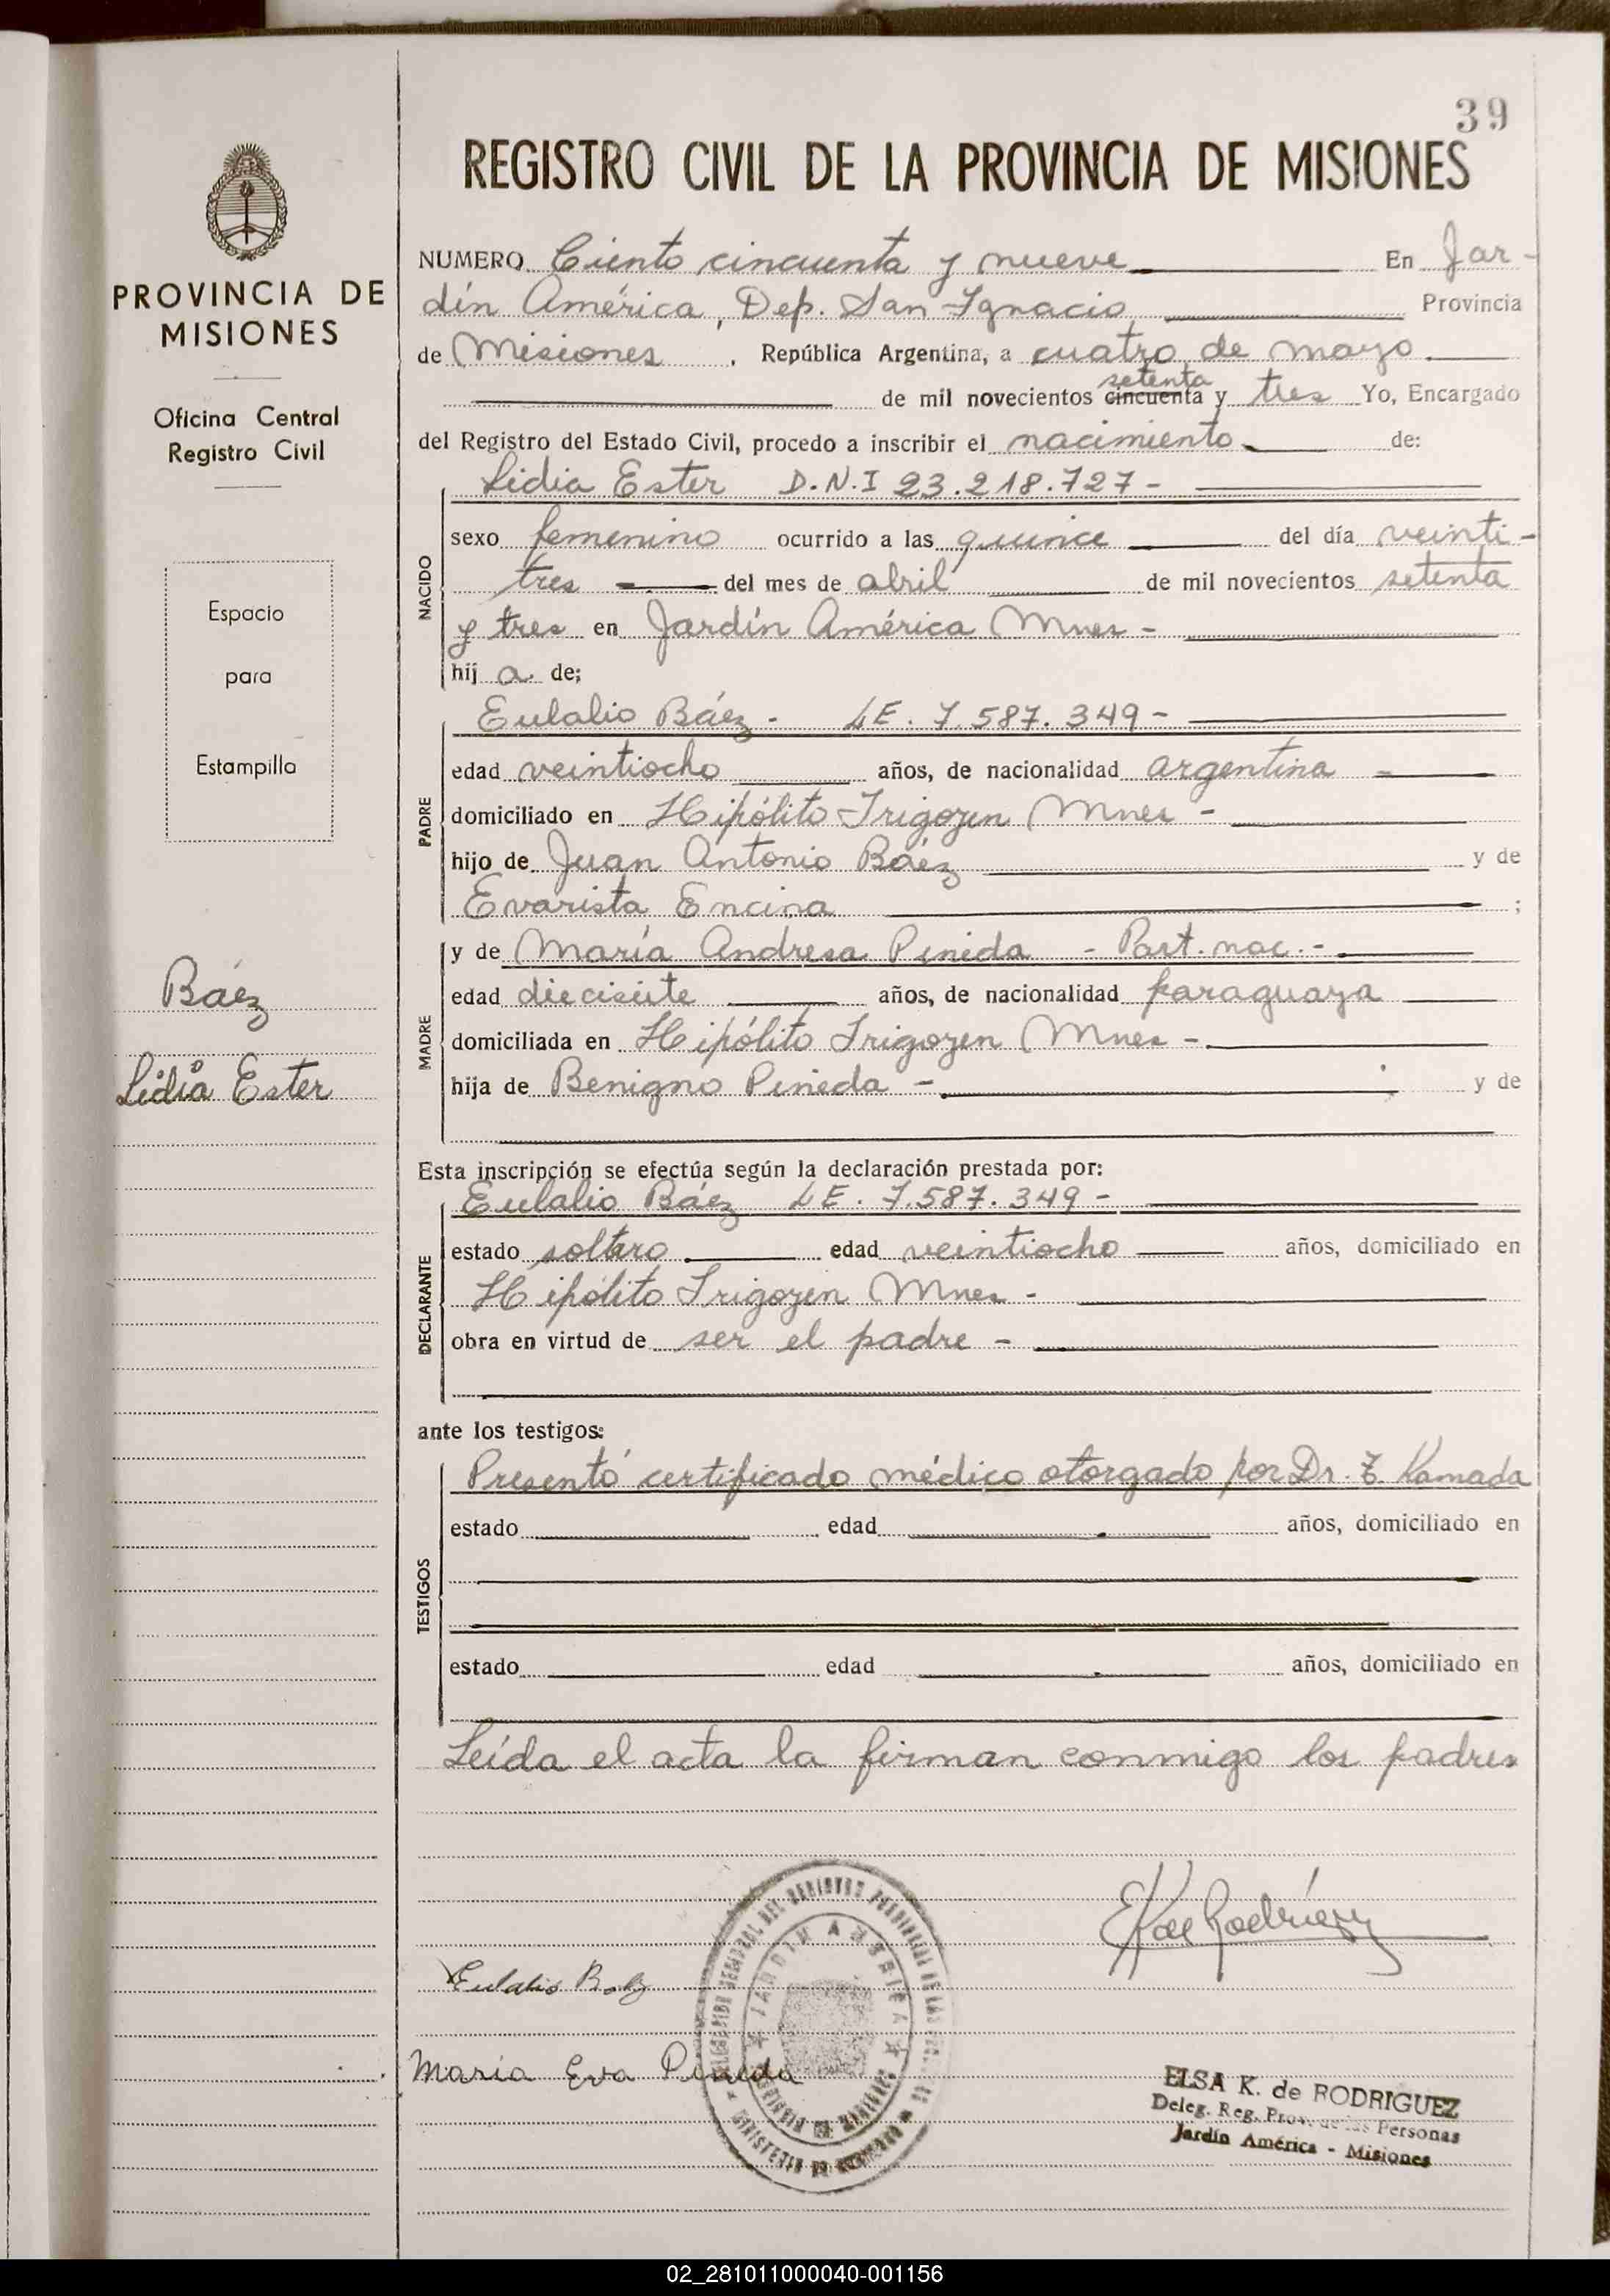 39
REGISTRO CIVIL DE LA PROVINCIA DE MISIONES
PROVINCIA DE
MISIONES
Oficina Central
Registro Civil
Espacio
para
Estampilla
Báez
Lidia Ester
NUMERO Ciento cincuenta y nueve En Jar-
dín América, Dep. San Ignacio Provincia
de Misiones, República Argentina, a cuatro de mayo
setenta
de mil novecientos cincuenta y tres Yo, Encargado
del Registro del Estado Civil, procedo a inscribir el nacimiento de:
Lidia Ester D.N.I 23.218.727-
NACIDO
sexo femenino ocurrido a las quince del día veinti-
tres del mes de abril de mil novecientos setenta
y tres en Jardín América Mnes -
hija de;
Eulalio Báez - LE. 7.587.349-
PADRE
edad veintiocho años, de nacionalidad argentina
domiciliado en Hipólito Irigoyen Mnes -
hijo de Juan Antonio Báez y de
Evarista Encina ;
MADRE
y de María Andresa Pineda - Part. nac. -
edad diecisiete años, de nacionalidad paraguaya
domiciliada en Hipólito Irigoyen Mnes -
hija de Benigno Pineda - y de
Esta inscripción se efectúa según la declaración prestada por:
DECLARANTE
Eulalio Báez LE. 7.587.349-
estado soltero edad veintiocho años, domiciliado en
Hipólito Irigoyen Mnes -
obra en virtud de ser el padre -
ante los testigos:
TESTIGOS
Presentó certificado médico otorgado por Dr. Z. Kamada
estado edad años, domiciliado en
estado edad años, domiciliado en
Leída el acta la firman conmigo los padres
Eulalio Baez
JARDIN AMERICA
Maria Eva Pineda
ELSA K. de RODRIGUEZ
Deleg. Reg. Prov. de las Personas
Jardín América - Misiones
02_281011000040-001156